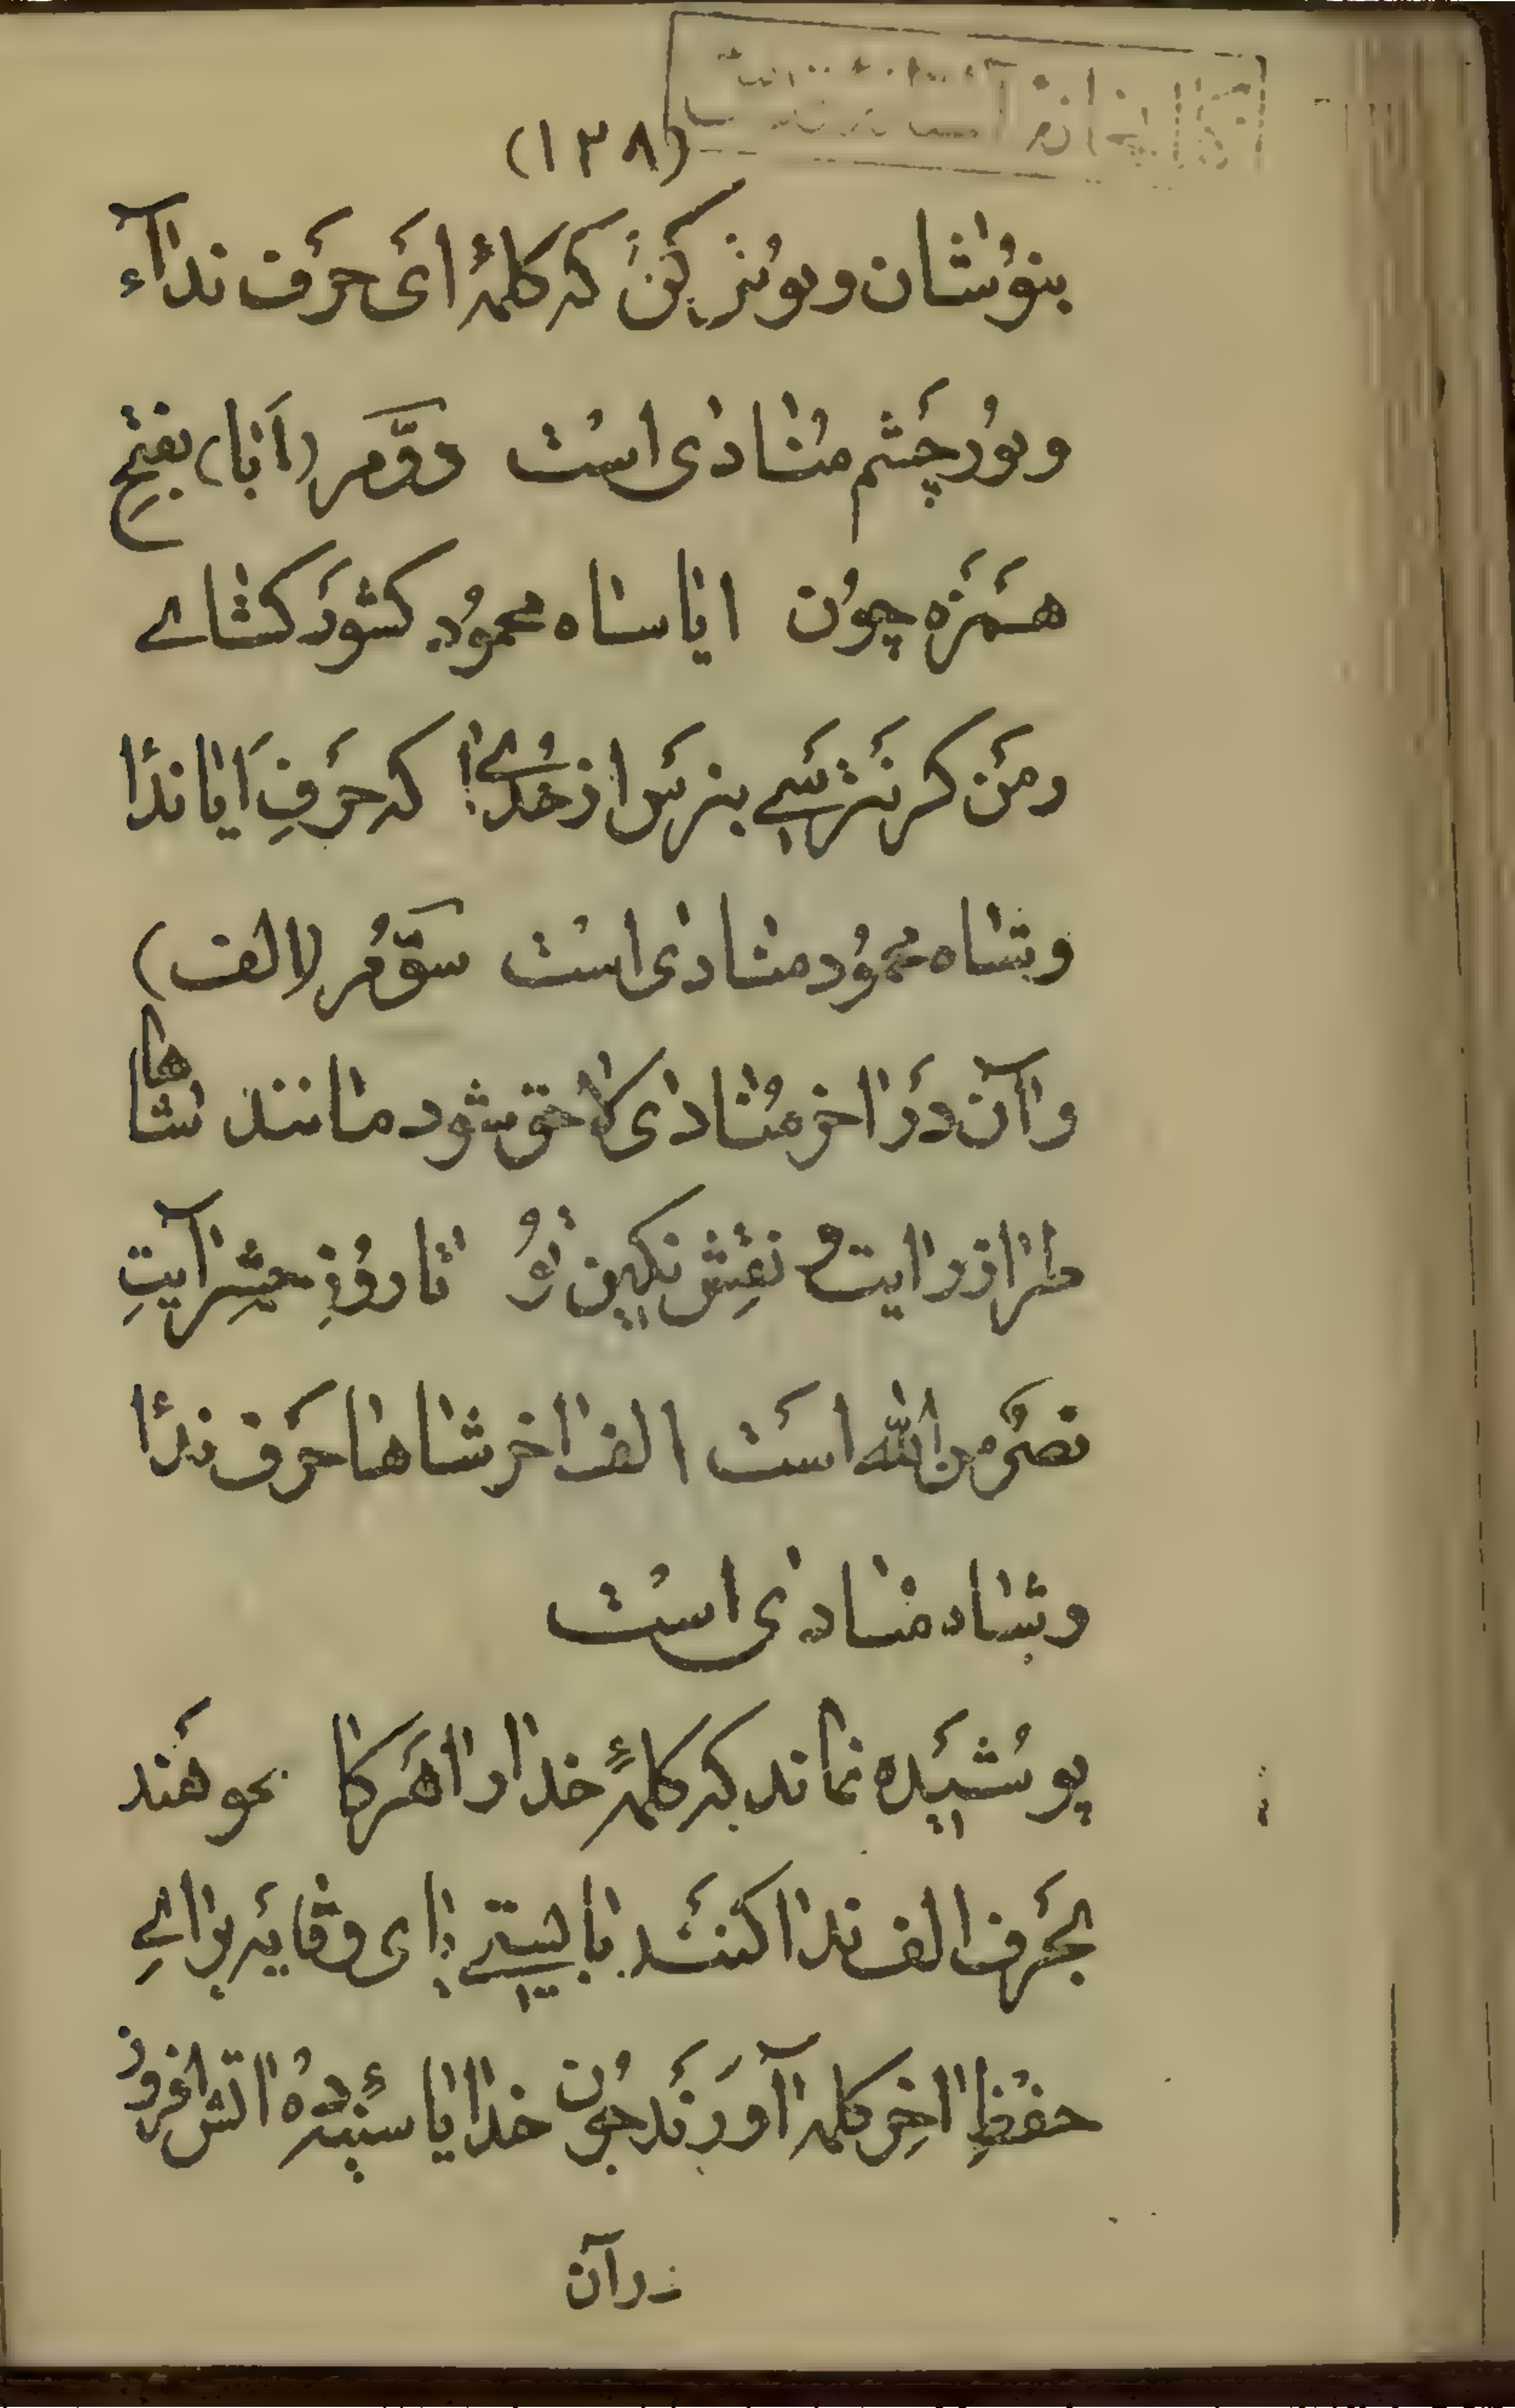 (۱۳۸)
بنوشان و بوُنز کُن که کلمهٔ ای حَرف ندآء
و نوُر چَشم مُنادٰی است دوَّم (اَیا) بفتحِ
همَزه چوُن ایا شاه محموُد کشوَر کشای
ز مَن کر نَترسَی بترَس از خُدای که حَرفِ اَیا ندا
و شاه محموُد منادٰی است سوَّمُ (الف)
و آن دَر اخر مُنادٰی لاحق شود مانند شاها
طراز رایت و نقِش نکین توُ تا روُزِ حشر آیتِ
نصرٌ من الله است الف اخر شاها حَرف ندا
و شاه منادٰی است
پوشیَده نماند که کلمهٔ خدا را هَرکاه خوهَند
بحَرف الف ندا کنَند بایستی یای وقایه برای
حفظِ اخِر کلمه آوَرَند چوُن خدایا سینهٔ دُه اتش افروز
در آن